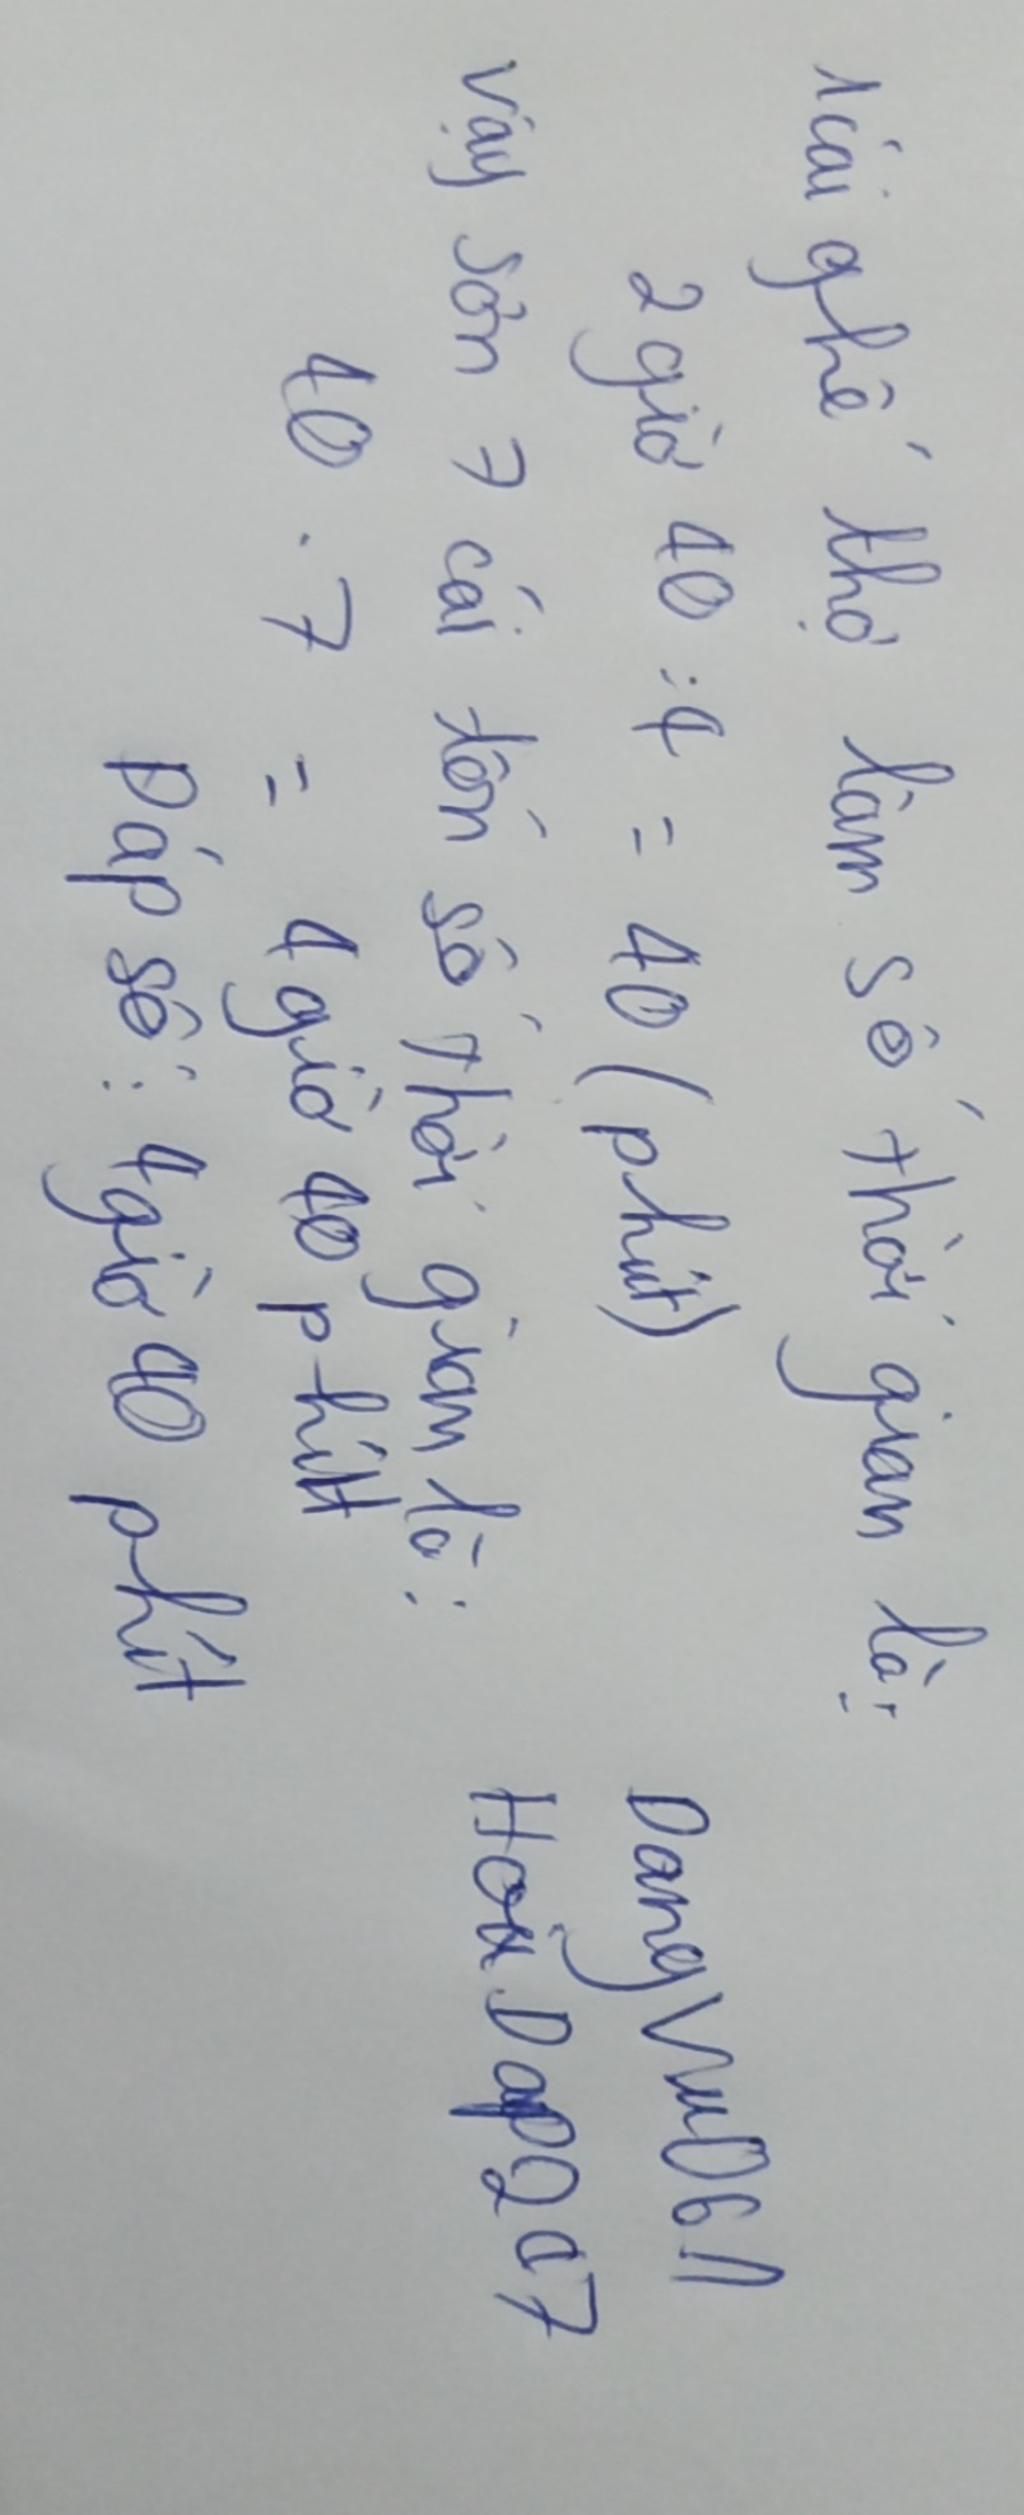 1 cái ghế thợ làm số thời gian là:
2 giờ 40 : 4 = 40 (phút)
Vậy sơn 7 cái tốn số thời gian là:
40 . 7 = 4 giờ 40 phút
Đáp số: 4 giờ 40 phút
DangVu061
HoiDap247